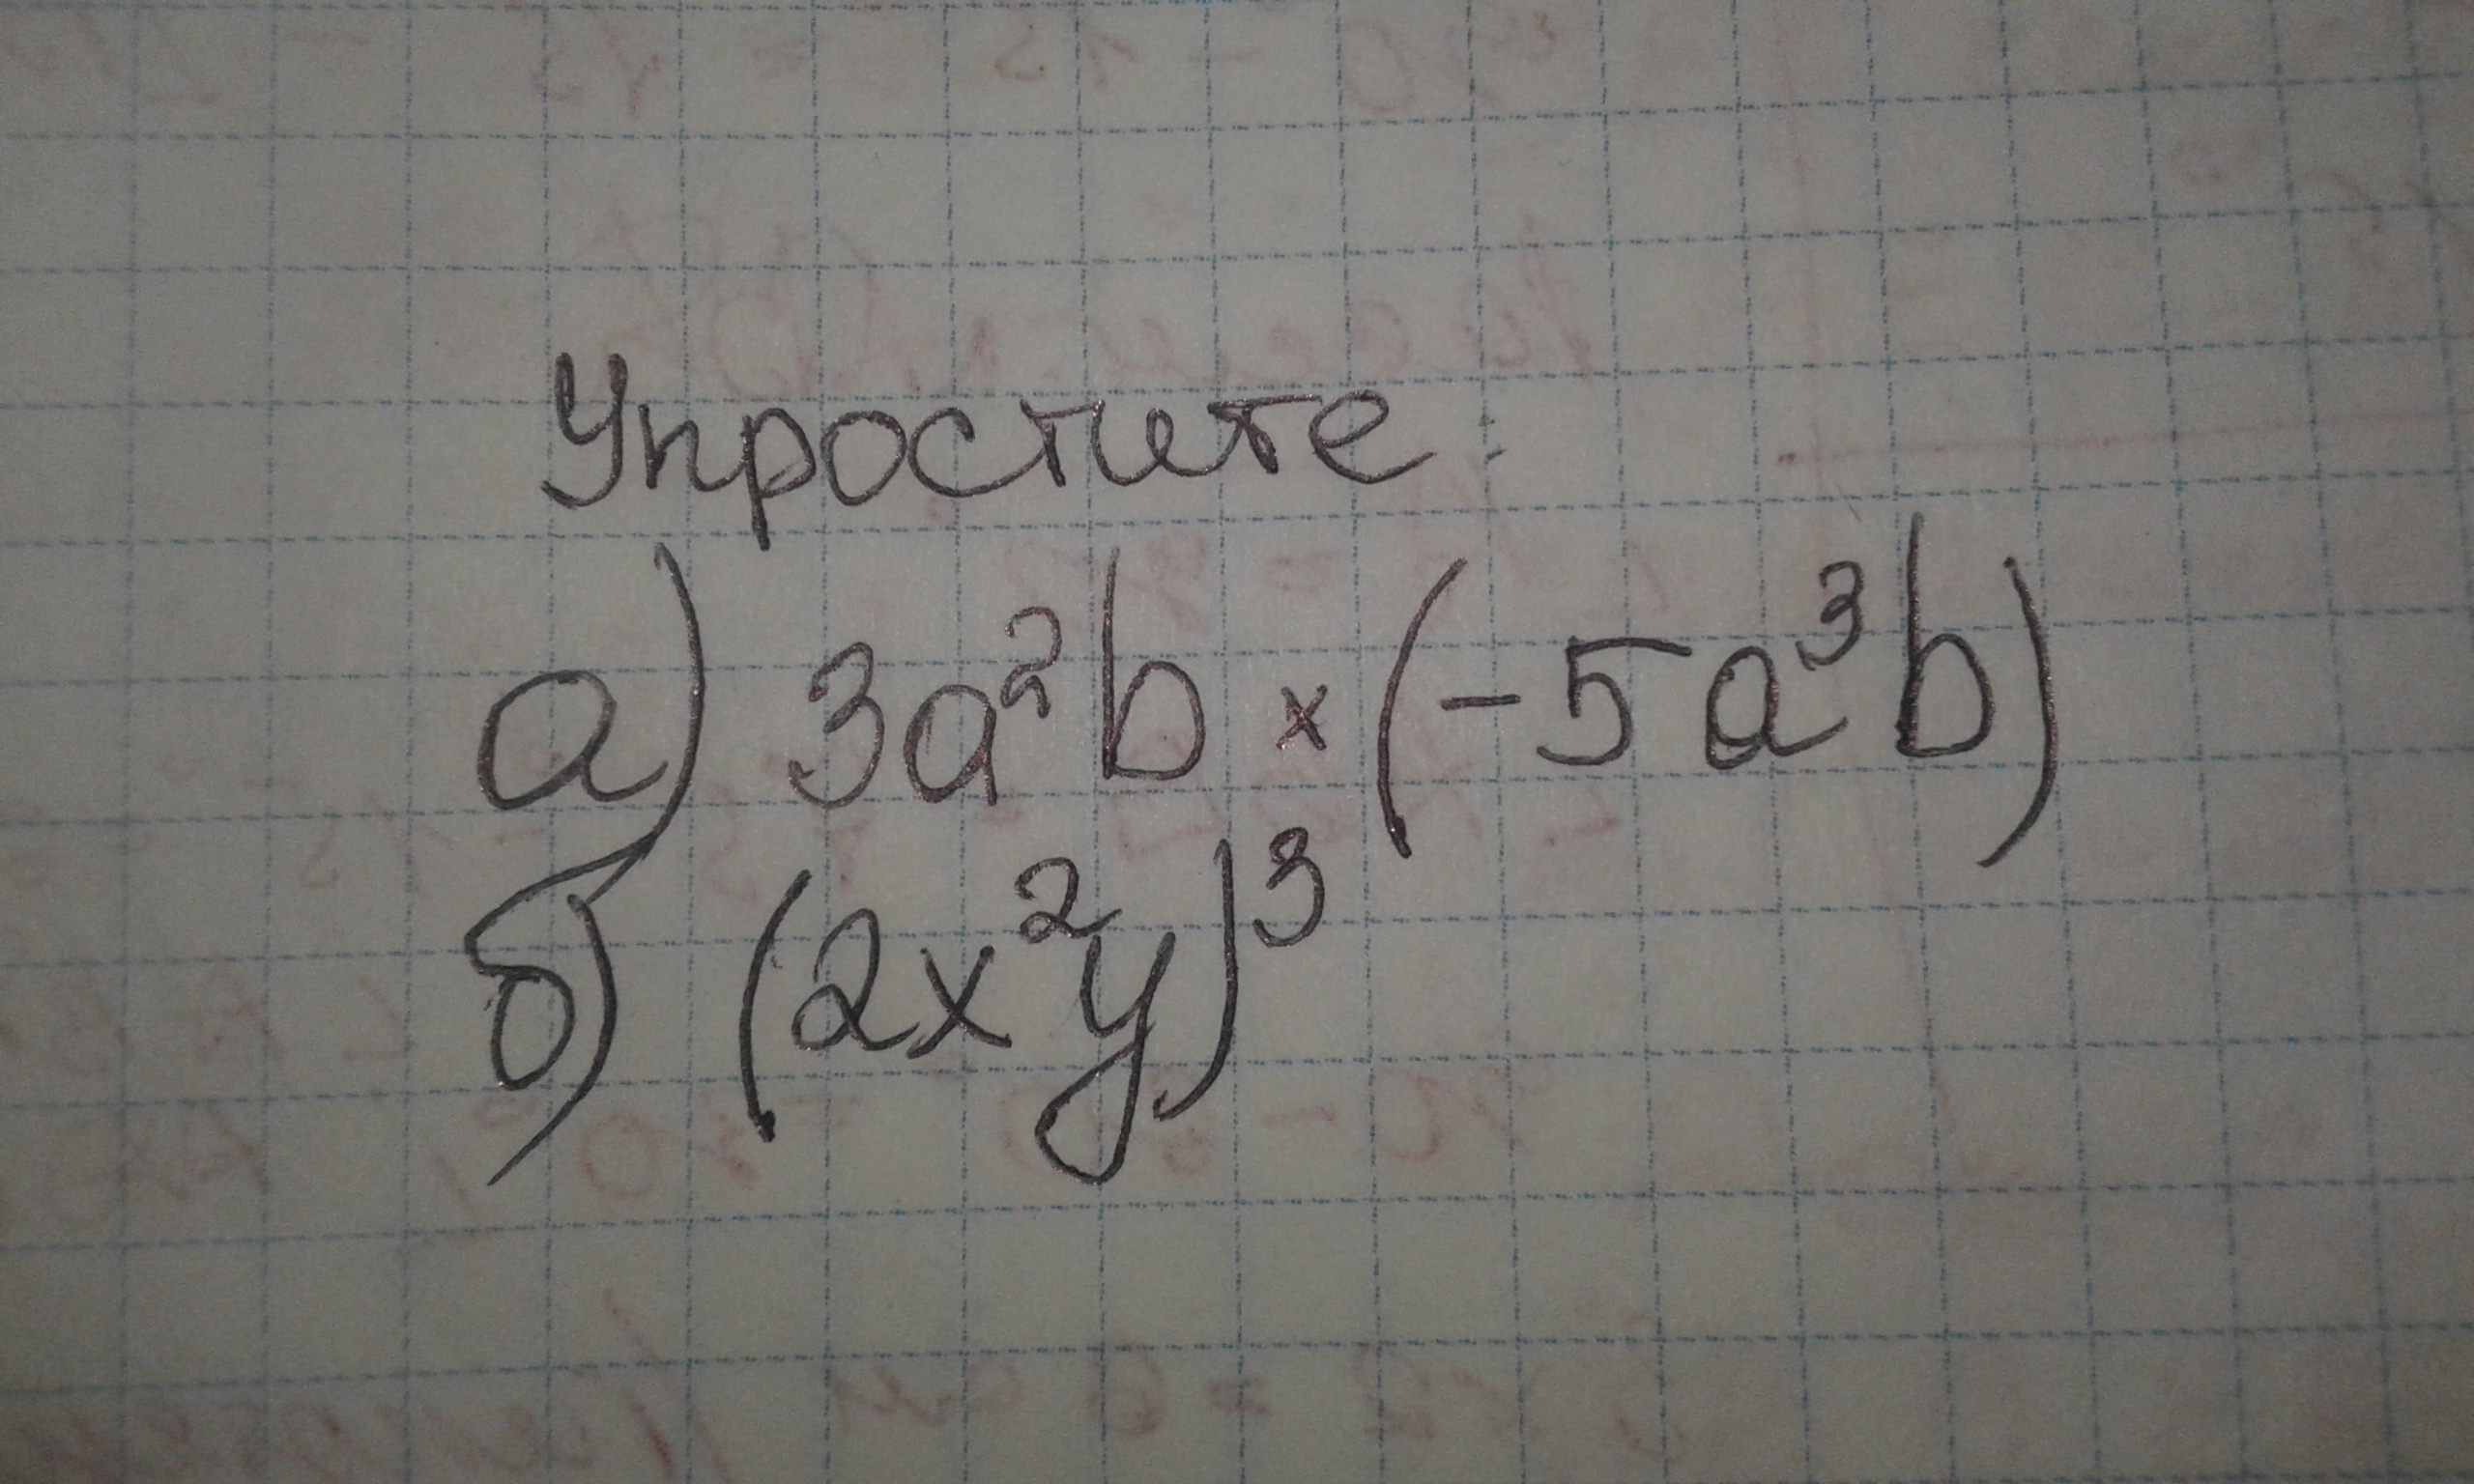 Упростите:
а) 3a²b × (-5a³b)
б) (2x²y)³